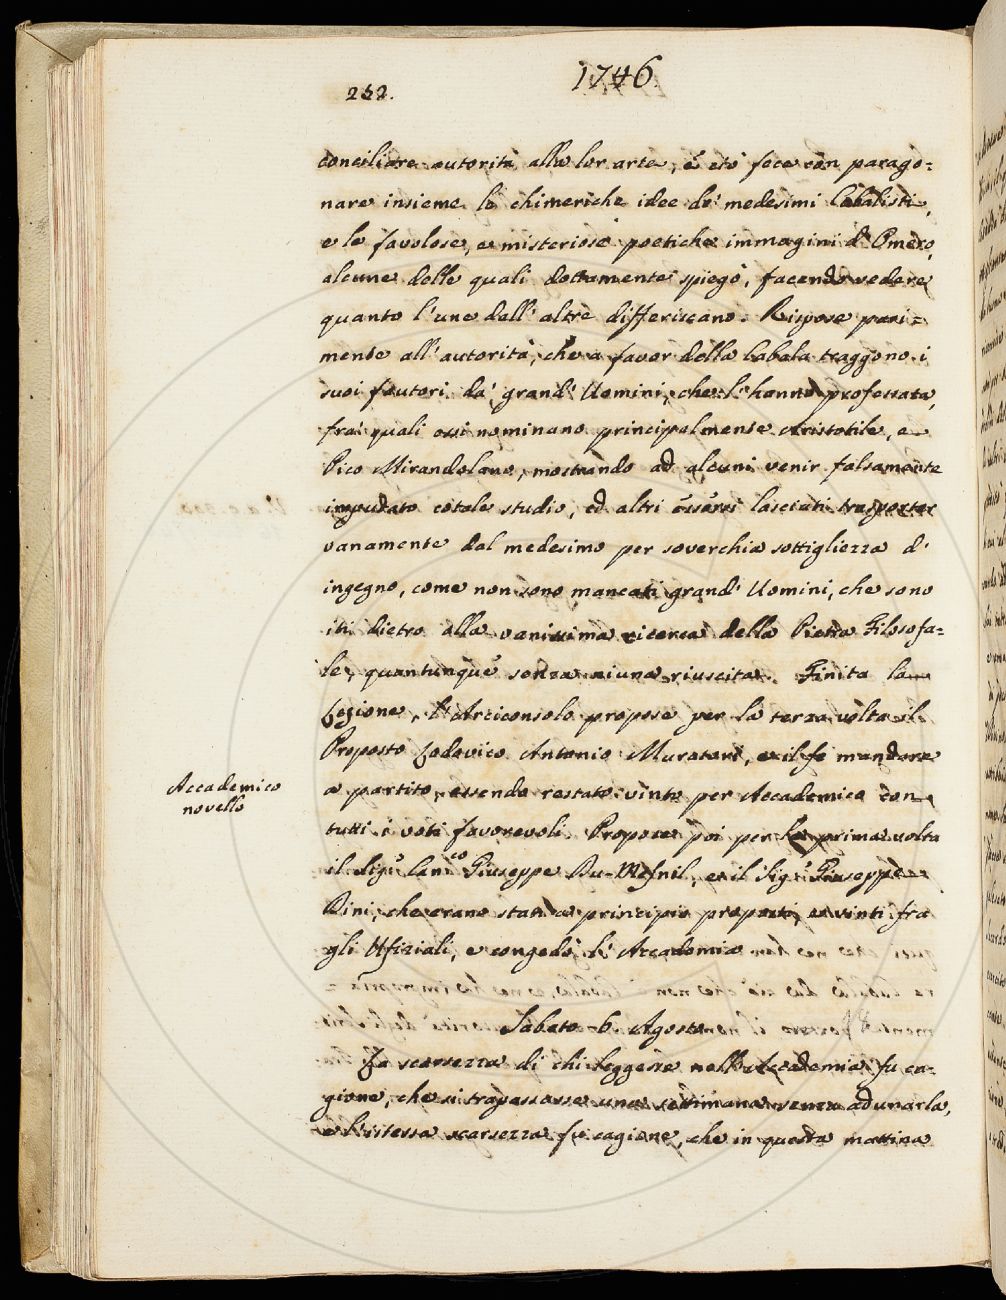 1746
252.
conciliare autorità alla lor arte, e ciò fece con parago=
nare insieme le chimeriche idee de' medesimi Cabalisti,
e le favolose, e misteriose poetiche immagini d'Omero,
alcune delle quali dottamente spiegò, facendo vedere
quanto l'une dall'altre differiscano. Rispose pari=
mente all'autorità, che a favor della Cabala traggono i
suoi fautori da' grand' Uomini, che l'hanno professata,
fra' quali essi nominano principalmente Aristotile, e
Pico Mirandolano, mostrando ad alcuni venir falsamente
imputato cotale studio, ed altri essersi lasciati trasportar
vanamente dal medesimo per soverchia sottigliezza d'
ingegno, come non sono mancati grand' Uomini, che sono
iti dietro alla vanissima ricerca della Pietra Filosofa=
le, quantunque senza niuna riuscita. Finita la
Lezione, l'Arciconsolo propose per la terza volta il
Proposto Lodovico Antonio Muratori, e il fe mandare
a partito, essendo restato vinto per Accademico con
tutti i voti favorevoli. Propose poi per la prima volta
il Sig.r Can.co Giuseppe Du-Mesnil, e il Sig.r Giuseppe
Bini, che erano stati a principio proposti, e vinti fra
gli Ufiziali, e congedò l'Accademia.
Accademico
novello
Sabato 6 Agosto
La scarsezza di chi leggesse nell'Accademia fu ca=
gione, che si trapassasse una settimana senza adunarla,
e l'istessa scarsezza fu cagione, che in questa mattina